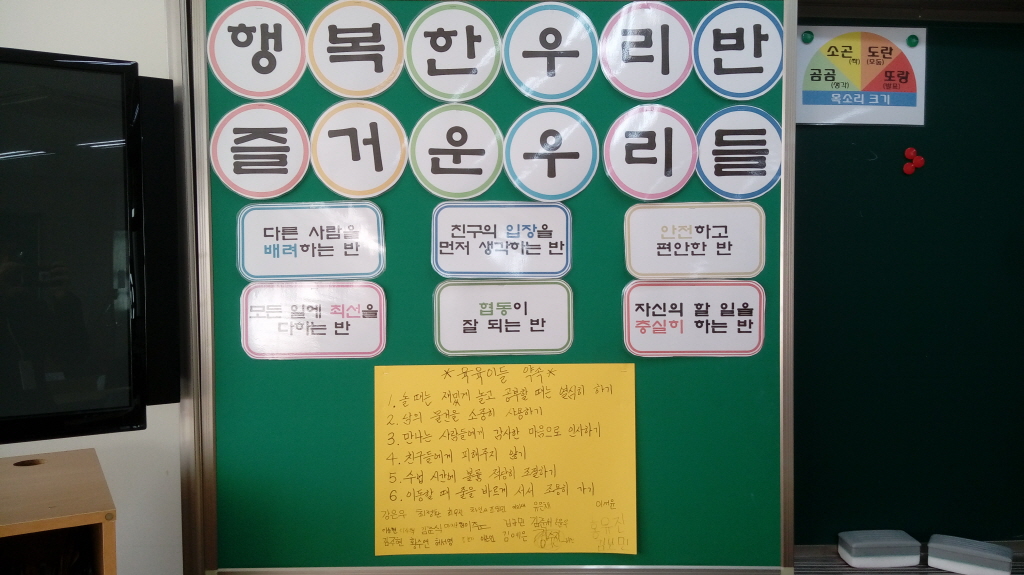 행복한우리반
즐거운우리들
소곤
(짝)
도란
(모둠)
곰곰
(생각)
또랑
(발표)
목소리 크기
다른 사람을
배려하는 반
친구의 입장을
먼저 생각하는 반
안전하고
편안한 반
모든 일에 최선을
다하는 반
협동이
잘 되는 반
자신의 할 일을
충실히 하는 반
*육육이들 약속*
1. 놀 때는 재밌게 놀고 공부할 때는 열심히 하기
2. 남의 물건을 소중히 사용하기
3. 만나는 사람들에게 감사한 마음으로 인사하기
4. 친구들에게 피해주지 않기
5. 수업 시간에 볼륨 적당히 조절하기
6. 이동할 때 줄을 바르게 서서 조용히 가기
강은우